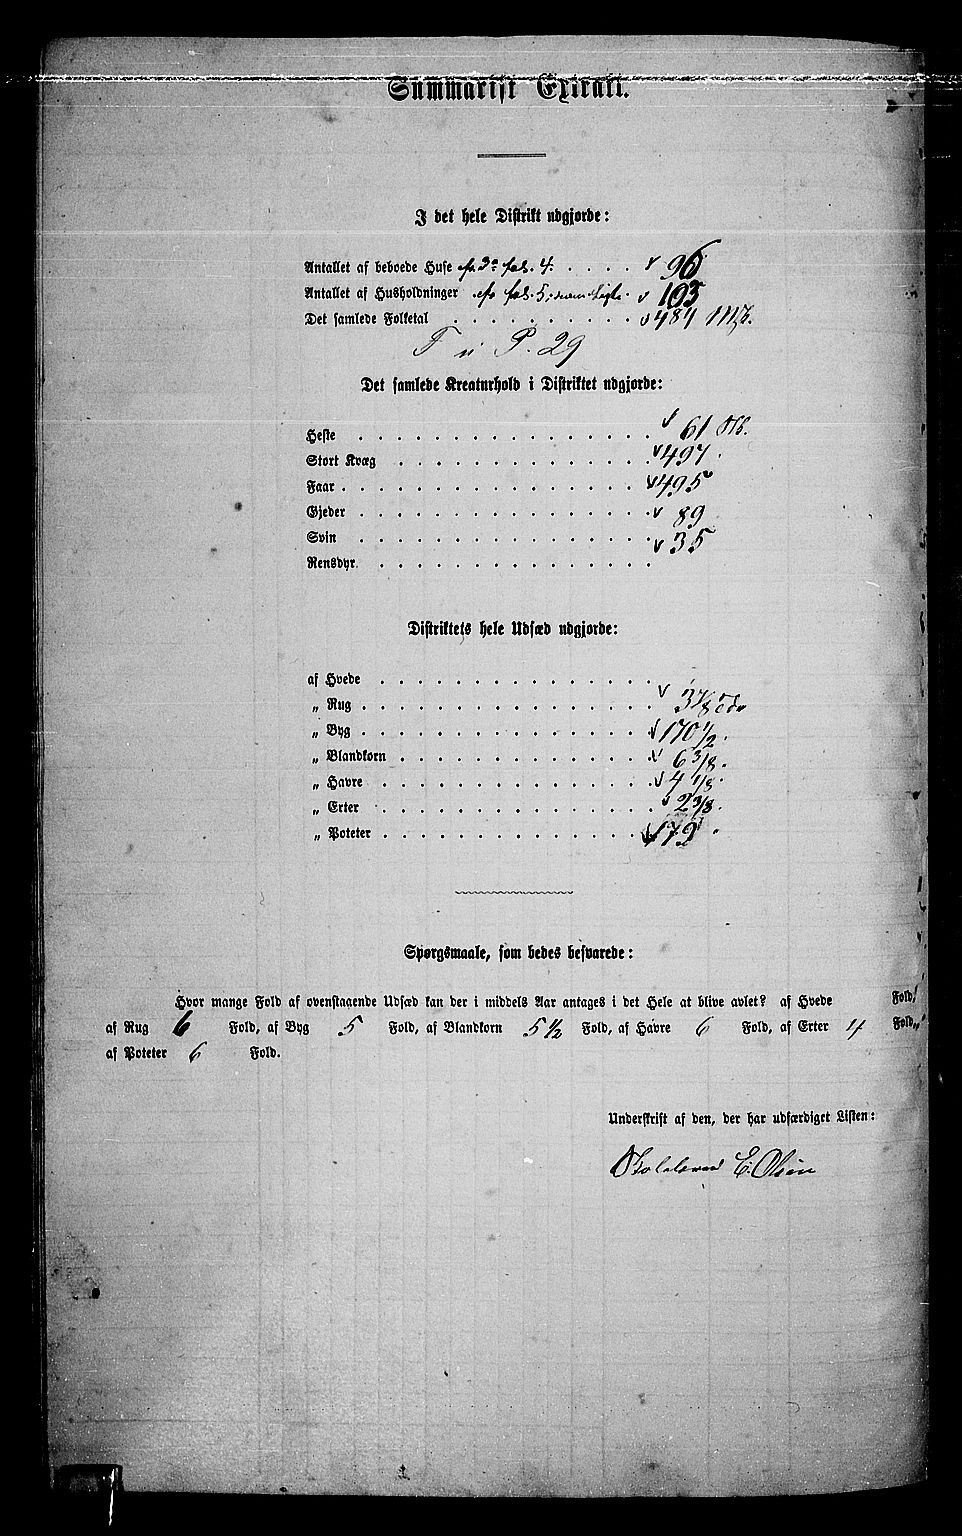 Summarisk Extrakt.
I det hele Distrikt udgjorde:
Antallet af beboede Huse . . . . . 96
Antallet af Husholdninger . 103
Det samlede Folketal . . . . . . . . . . 484
F u P. 29
Det samlede Kreaturhold i Distriktet udgjorde:
Heste . . . . . . . . . . . . . . 61 Stk.
Stort Kvæg . . . . . . . . . . . . 497
Faar . . . . . . . . . . . . . . . 495
Gjeder . . . . . . . . . . . . . . 89
Svin . . . . . . . . . . . . . . 35
Rensdyr . . . . . . . . . . . . .
Distriktets hele Udsæd udgjorde:
af Hvede . . . . . . . . . . . . .
„ Rug . . . . . . . . . . . . . . 3 7/8 Tdr
„ Byg . . . . . . . . . . . . . . 170 1/2
„ Blandkorn . . . . . . . . . . . . 6 3/8
„ Havre . . . . . . . . . . . . . 4 1/8
„ Erter . . . . . . . . . . . . . 2 3/8
„ Poteter . . . . . . . . . . . . 172
Spørgsmaale, som bedes besvarede:
Hvor mange Fold af ovenstaaende Udsæd kan der i middels Aar antages i det Hele at blive avlet? af Hvede Fold,
af Rug 6 Fold, af Byg 5 Fold, af Blandkorn 5 1/2 Fold, af Havre 6 Fold, af Erter 4 Fold,
af Poteter 6 Fold.
Underskrift af den, der har udfærdiget Listen:
Skolelærer E. Olsen